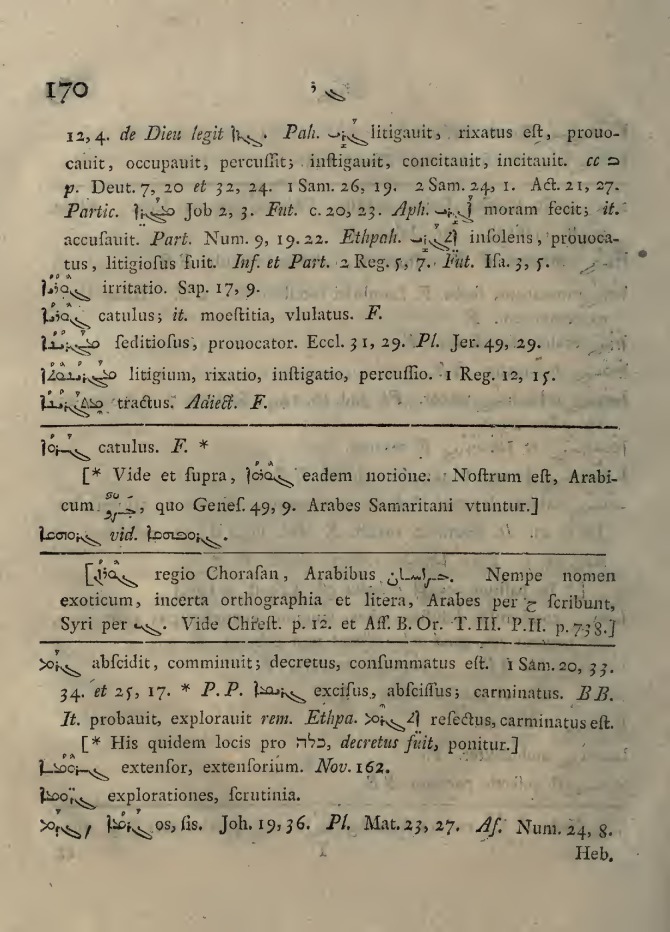 170 ܓܪ
12, 4. de Dieu legit. Pah. ܓܪܝ litigauit, rixatus eſt, prouo-
cauit, occupauit, percuſſit; inſtigauit, concitauit, incitauit. cc ܒ
p. Deut. 7, 20 et 32, 24. 1 Sam. 26, 19. 2 Sam. 24, 1. Act. 21, 27.
Partic. Job 2, 3. Fut. c. 20, 23. Aph. ܐܓܪܝ moram fecit; it.
accuſauit. Part. Num. 9, 19. 22. Ethpah. ܐܬܓܪܝ inſolens, prouoca-
tus, litigioſus fuit. Inf. et Part. 2 Reg. 5, 7. Fut. Iſa. 3, 5.
irritatio. Sap. 17, 9.
catulus; it. moeſtitia, vlulatus. F.
ܡܓܪܝܢܐ ſeditioſus, prouocator. Eccl. 31, 29. Pl. Jer. 49, 29.
ܡܓܪܝܢܘܬܐ litigium, rixatio, inſtigatio, percuſſio. 1 Reg. 12, 15.
ܡܬܓܪܝܢܐ tractus. Adiect. F.
ܓܪܝܐ catulus. F. *
[* Vide et ſupra, eadem notione. Noſtrum eſt, Arabi-
cum, quo Geneſ. 49, 9. Arabes Samaritani vtuntur.]
vid.
regio Choraſan, Arabibus خراسان. Nempe nomen
exoticum, incerta orthographia et litera, Arabes per خ ſcribunt,
Syri per ܓ. Vide Chreſt. p. 12. et Aſſ. B. Or. T. III. P. II. p. 738.]
ܓܪܡ abſcidit, comminuit; decretus, conſummatus eſt. 1 Sam. 20, 33.
34. et 25, 17. * P. P. ܓܪܝܡܐ exciſus, abſciſſus; carminatus. BB.
It. probauit, explorauit rem. Ethpa. ܐܬܓܪܡ refectus, carminatus eſt.
[* His quidem locis pro כלה, decretus fuit, ponitur.]
extenſor, extenſorium. Nov. 162.
explorationes, ſcrutinia.
ܓܪܡ, ܓܪܡܐ os, ſis. Joh. 19, 36. Pl. Mat. 23, 27. Af. Num. 24, 8.
Heb.